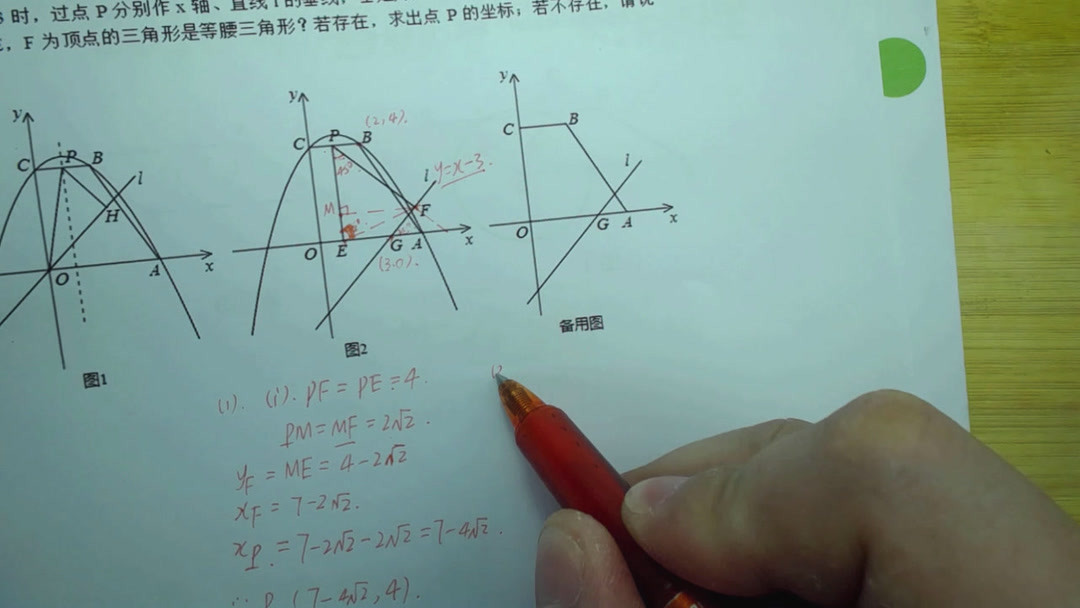 时，过点 P 分别作 x 轴、直线 l 的垂线，
，F 为顶点的三角形是等腰三角形？若存在，求出点 P 的坐标；若不存在，请说
y
C P B
l
H
O A x
图1
y
(2,4).
C P B
45°
l y=x-3.
M F
O E G A x
(3.0).
图2
y
C B
l
O G A x
备用图
(1). (i). PF = PE = 4.
PM = MF = 2√2.
y_F = ME = 4-2√2
x_F = 7-2√2.
x_P = 7-2√2-2√2 = 7-4√2.
∴ P (7-4√2, 4).